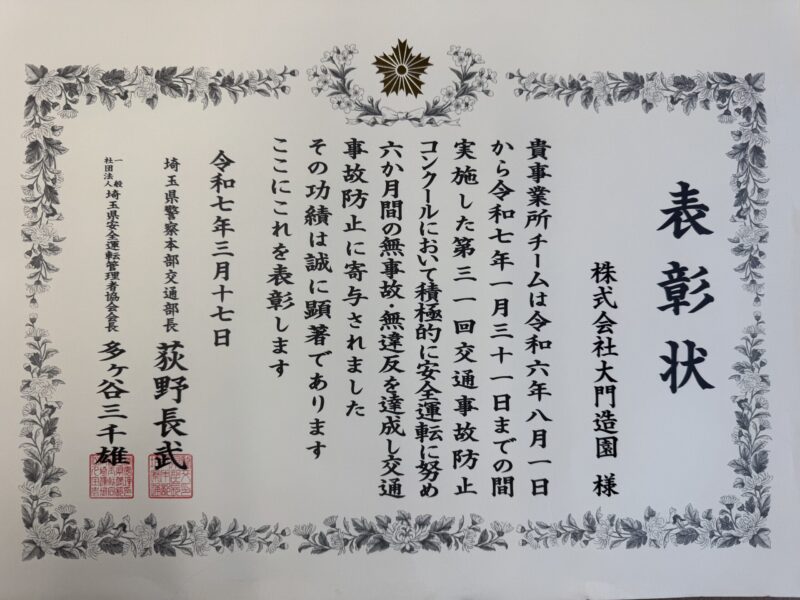 表彰状
株式会社大門造園 様
貴事業所チームは令和六年八月一日
から令和七年一月三十一日までの間
実施した第三一回交通事故防止
コンクールにおいて積極的に安全運転に努め
六か月間の無事故・無違反を達成し交通
事故防止に寄与されました
その功績は誠に顕著であります
ここにこれを表彰します
令和七年三月十七日
埼玉県警察本部交通部長 荻野長武
一般社団法人 埼玉県安全運転管理者協会会長 多ヶ谷三千雄